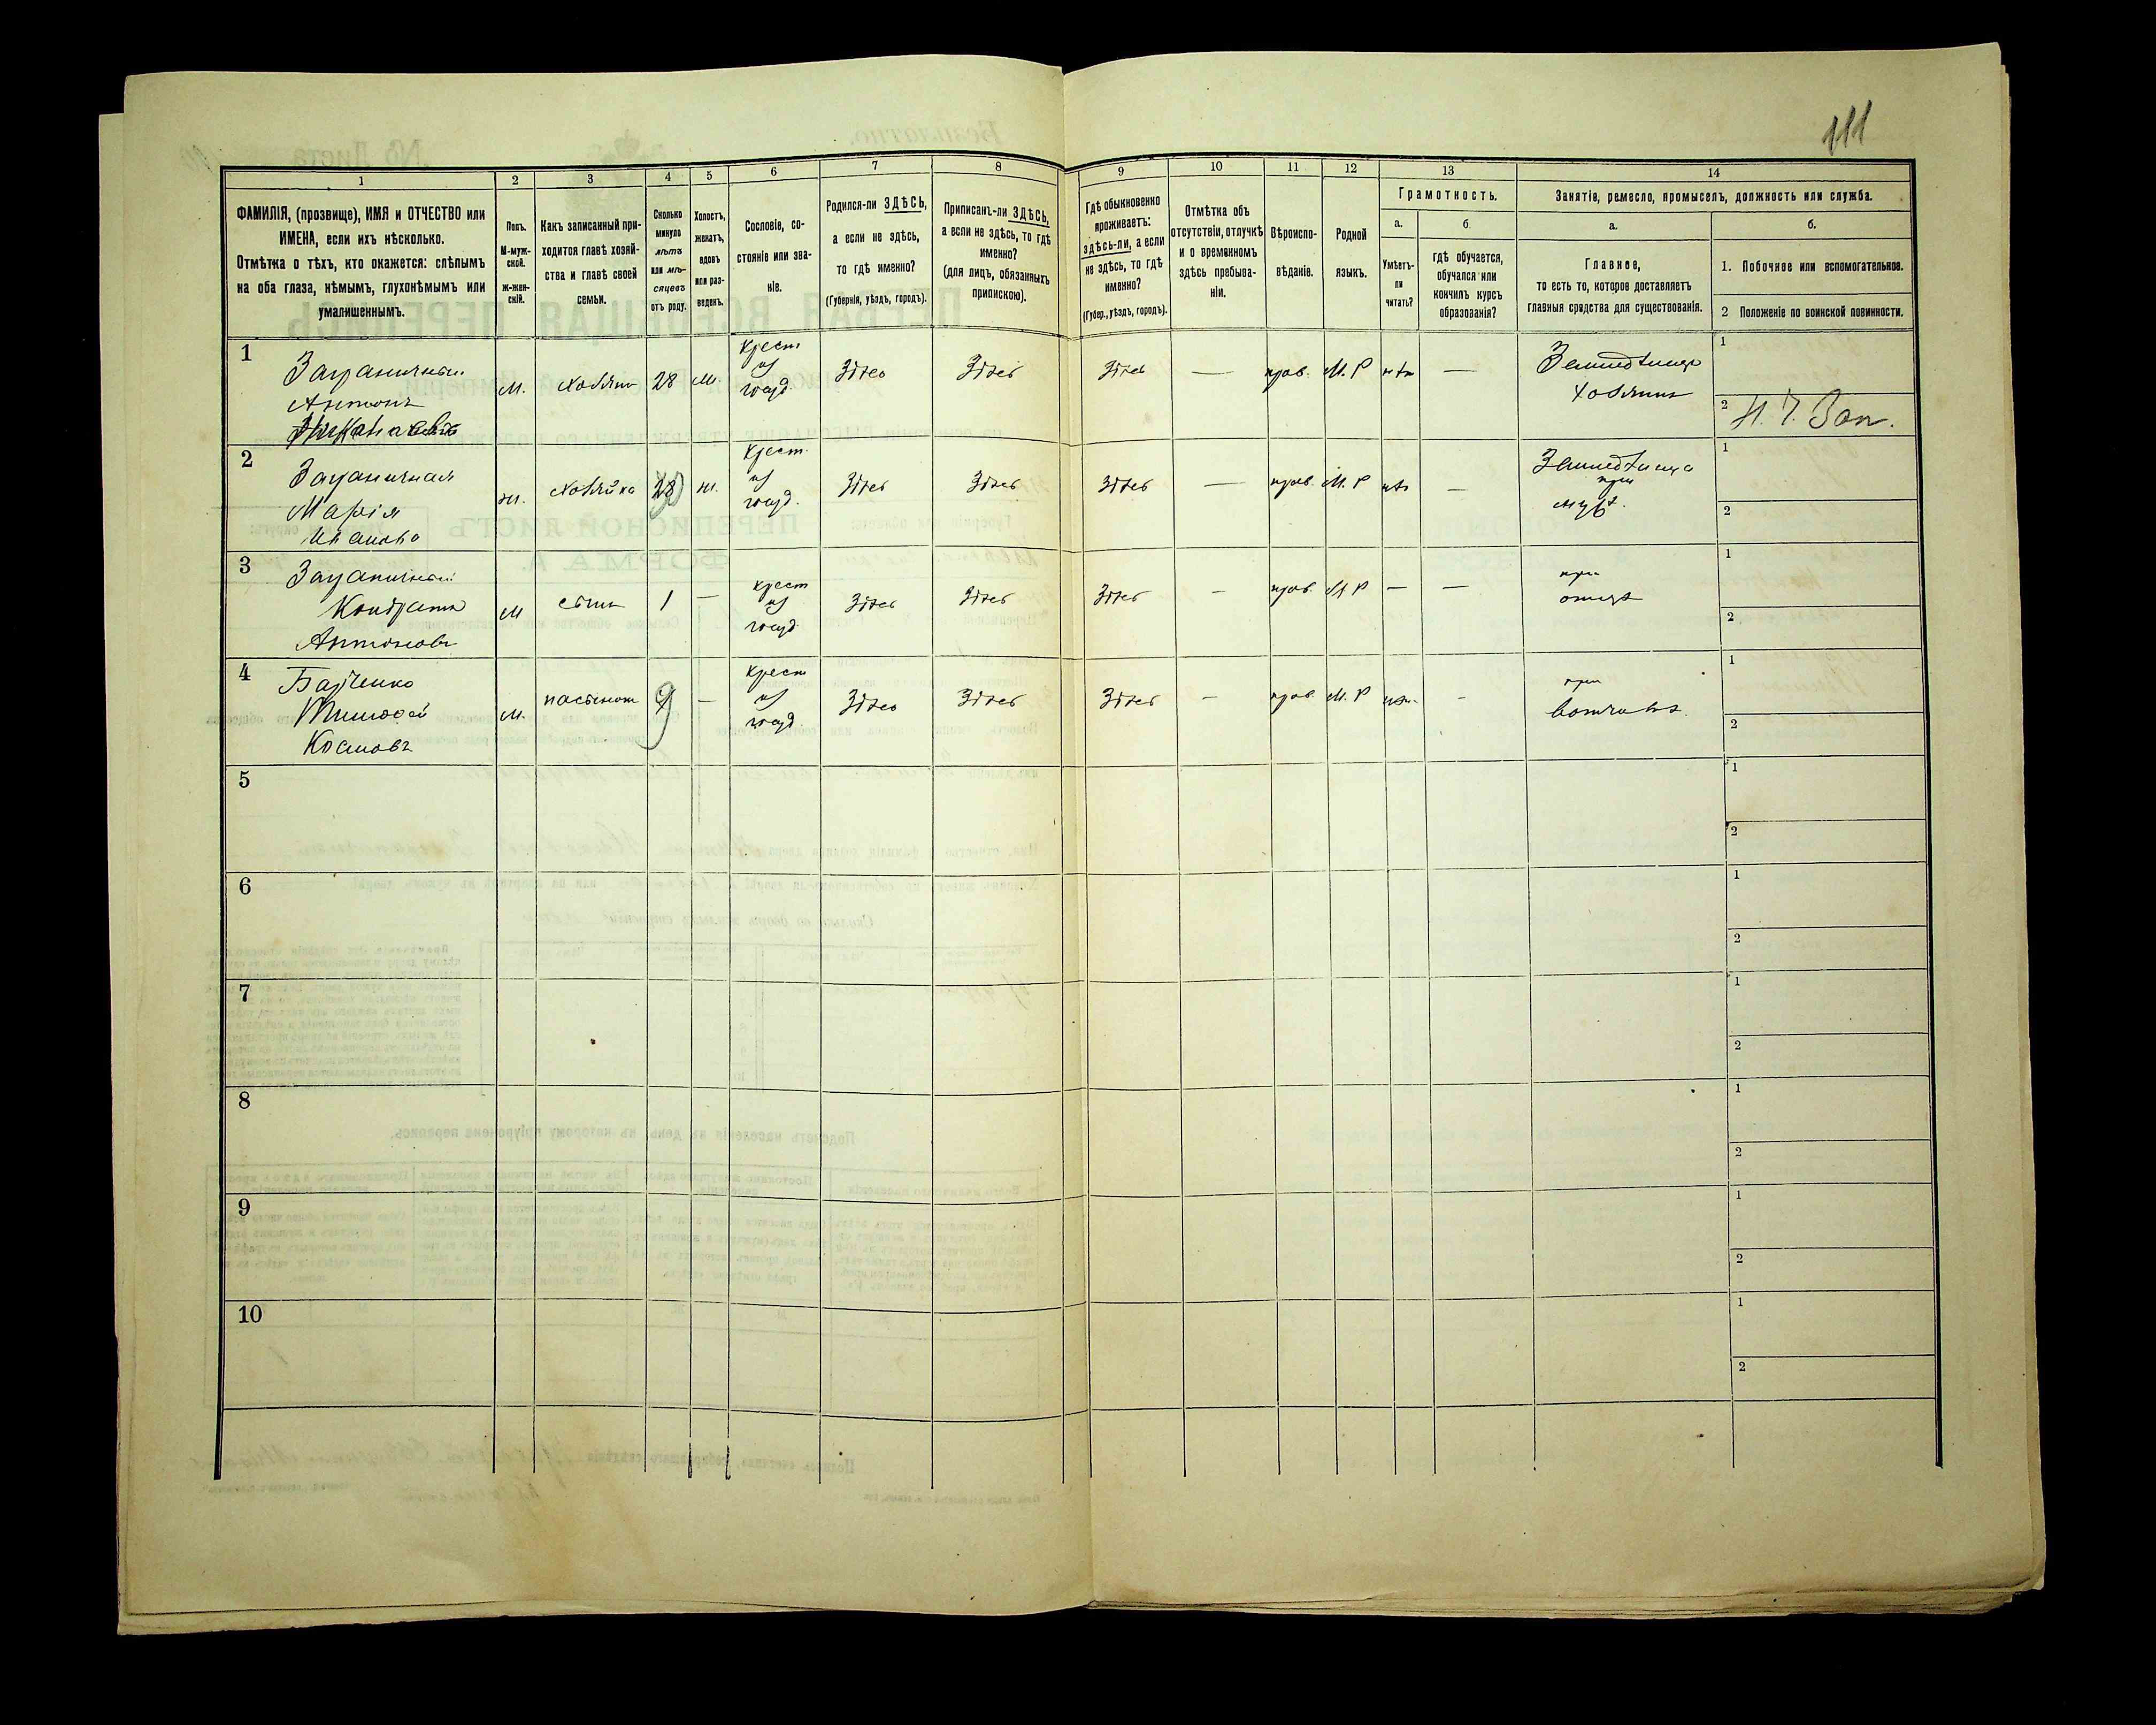 111
1
2
3
4
5
6
7
8
9
10
11
12
13
14
ФАМИЛІЯ, (прозвище), ИМЯ и ОТЧЕСТВО или
ИМЕНА, если ихъ нѣсколько.
Отмѣтка о тѣхъ, кто окажется: слѣпымъ
на оба глаза, нѣмымъ, глухонѣмымъ или
умалишеннымъ.
Полъ.
М-муж-
ской.
ж-жен-
скій.
Какъ записанный при-
ходится главѣ хозяй-
ства и главѣ своей
семьи.
Сколько
минуло
лѣтъ
или мѣ-
сяцевъ
отъ роду.
Холостъ,
женатъ,
вдовъ
или раз-
веденъ.
Сословіе, со-
стояніе или зва-
ніе.
Родился-ли ЗДѢСЬ,
а если не здѣсь,
то гдѣ именно?
(Губернія, уѣздъ, городъ).
Приписанъ-ли ЗДѢСЬ,
а если не здѣсь, то гдѣ
именно?
(для лицъ, обязанныхъ
припискою).
Гдѣ обыкновенно
проживаетъ:
здѣсь-ли, а если
не здѣсь, то гдѣ
именно?
(Губер., уѣздъ, городъ).
Отмѣтка объ
отсутствіи, отлучкѣ
и о временномъ
здѣсь пребыва-
ніи.
Вѣроиспо-
вѣданіе.
Родной
языкъ.
Грамотность.
а.
Умѣетъ-
ли
читать?
б.
гдѣ обучается,
обучался или
кончилъ курсъ
образованія?
Занятія, ремесло, промыселъ, должность или служба.
а.
Главное,
то есть то, которое доставляетъ
главныя средства для существованія.
б.
1. Побочное или вспомогательное.
2 Положеніе по воинской повинности.
1
Заграничный
Антонъ
м.
хозяинъ
28
м.
крест
из
госуд.
Здѣсь
Здѣсь
Здѣсь
—
прав.
М. Р
нѣт
—
Земледѣлецъ
хозяинъ
1
2
Н. 7. Зап.
2
Заграничная
Марія
Иванова
ж.
хозяйка
28
ж.
крест.
из
госуд.
Здѣсь
Здѣсь
Здѣсь
—
прав.
М. Р
нѣт
—
Земледѣлица
при
мужѣ.
1
2
3
Заграничный
Кондратъ
Антоновъ
м
сынъ
1
—
крест
из
госуд.
Здѣсь
Здѣсь
Здѣсь
—
прав.
М Р
—
—
при
отцѣ
1
2
4
Тимофей
Космовъ
м.
пасынокъ
9
—
крест
из
госуд.
Здѣсь
Здѣсь
Здѣсь
—
прав.
М. Р
нѣт.
—
при
вотчимѣ.
1
2
5
1
2
6
1
2
7
1
2
8
1
2
9
1
2
10
1
2